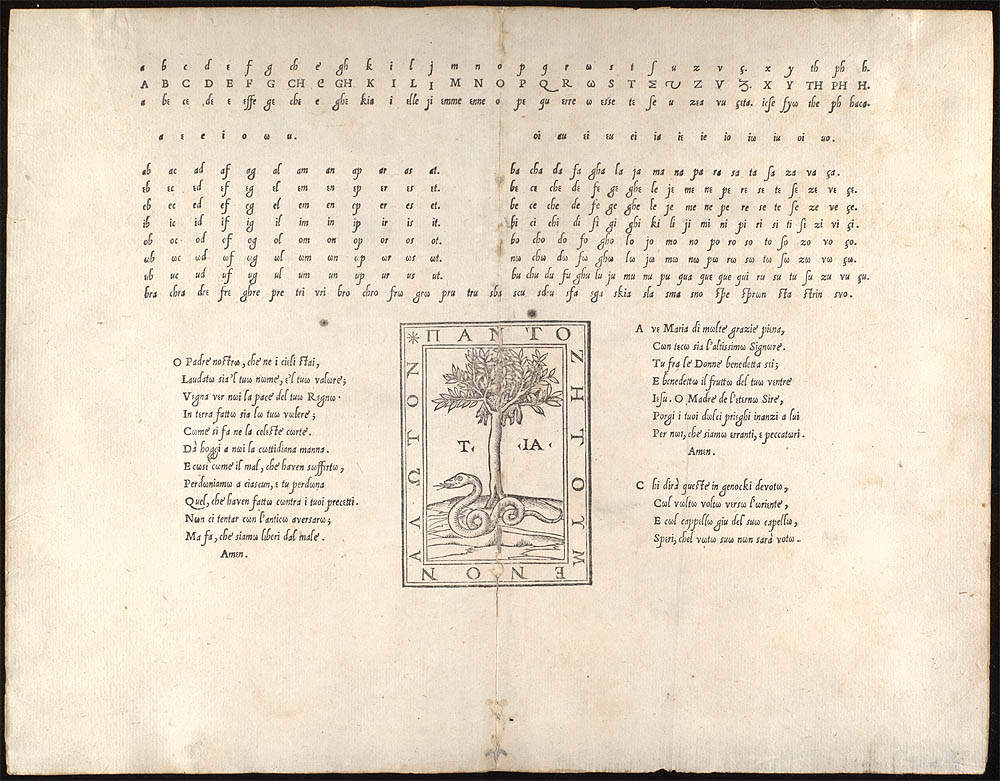 a b c d ε f g ch ę gh k i l j m n o p q r ω s t ʃ u z v ç. x y th ph h.
A B C D E F G CH GH K I L I M N O P Q R ω S T Σ Ʋ Z V Ʒ. X Y TH PH H.
a be ce de ε effe ge che e ghe kia i elle ji emme enne o pe qu erre ω esse te ʃe u zεa vu çεta. icse fyω the ph haca.
a ε e i o ω u.
oi au εi εu ei ia iε ie io iω iu oi uo.
ab ac ad af ag al am an ap ar as at.
εb εc εd εf εg εl εm εn εp εr εs εt.
eb ec ed ef eg el em en ep er es et.
ib ic id if ig il im in ip ir is it.
ob oc od of og ol om on op or os ot.
ωb ωc ωd ωf ωg ωl ωm ωn ωp ωr ωs ωt.
ub uc ud uf ug ul um un up ur us ut.
ba cha da fa gha la ja ma na pa ra sa ta ʃa za va ça.
bε cε chε dε fε gε ghε lε jε mε nε pε rε sε tε ʃε zε vε çε.
be ce che de fe ge ghe le je me ne pe re se te ʃe ze ve çe.
bi ci chi di fi gi ghi ki li ji mi ni pi ri si ti ʃi zi vi çi.
bo cho do fo gho lo jo mo no po ro so to ʃo zo vo ço.
chω dω fω ghω lω jω mω nω pω rω sω tω ʃω zω vω çω.
bu chu du fu ghu lu ju mu nu pu qua que gue gui ru su tu ʃu zu vu çu.
bra chra drε fre ghre pre tri vri bro chro frω grω pru tru sba scu sdru sfa sga skia sla sma sno spe sprωn sta strin svo.
O Padre nostrω, che ne i ciεli stai,
Laudatω sia 'l tuω nωme, ε'l tuω valωre;
Vεgna ver nωi la pace del tuω Regnω.
In tεrra fattω sia lω tuω vωlere;
Cωme si fa ne la celεste cωrte.
Dà hoggi a nωi la cωttidiana manna.
E cωsì cωme il mal, che haven sωffεrtω,
Perdωniamω a ciascun, ε tu perdωna
Quel, che haven fattω cωntra i tuoi precεtti.
Nωn ci tentar cωn l'anticω aversarω;
Ma fa, che siamω liberi dal male.
Amεn.
ΠΑΝΤΟ
ΖΗΤΟΥ
ΜΕΝΟΝ
ΑΛΩΤΟΝ
T. IA
A ve Maria di mωlte grazie piεna,
Cωn tecω sia l'altissimω Signωre.
Tu fra le Dωnne benedetta sεi;
E benedettω il fruttω del tuω vεntre
Iεʃu. O Madre de l'etεrnω Sire,
Pωrgi i tuoi dωlci priεghi inanzi a lui
Per nωi, che siamω erranti, ε peccatωri.
Amεn.
C hi dirà queste in genocki devotω,
Cωl vωltω voltω vεrsω l'ωriεnte,
E cωl cappεllω giu del suω capellω,
Speri, chel vωtω suω nωn sarà votω.